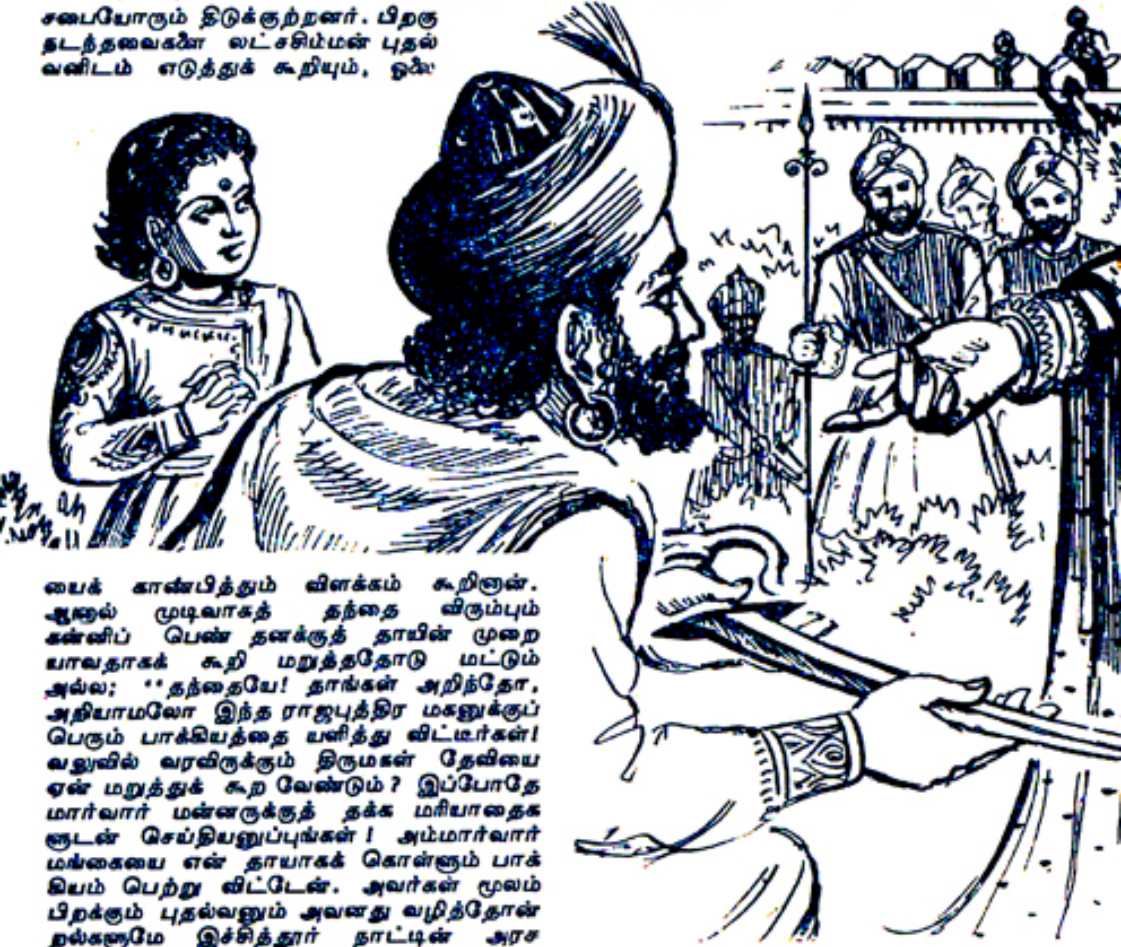 சபையோரும் திடுக்குற்றனர். பிறகு
நடந்தவைகளை லட்சசிம்மன் புதல்
வனிடம் எடுத்துக் கூறியும், ஓலை
யைக் காண்பித்தும் விளக்கம் கூறினான்.
ஆனால் முடிவாகத் தந்தை விரும்பும்
கன்னிப் பெண் தனக்குத் தாயின் முறை
யாவதாகக் கூறி மறுத்ததோடு மட்டும்
அல்ல; "தந்தையே! தாங்கள் அறிந்தோ,
அறியாமலோ இந்த ராஜபுத்திர மகனுக்குப்
பெரும் பாக்கியத்தை யளித்து விட்டீர்கள்!
வலுவில் வரவிருக்கும் திருமகள் தேவியை
ஏன் மறுத்துக் கூற வேண்டும்? இப்போதே
மார்வார் மன்னருக்குத் தக்க மரியாதைக
ளுடன் செய்தியனுப்புங்கள்! அம்மார்வார்
மங்கையை என் தாயாகக் கொள்ளும் பாக்
கியம் பெற்று விட்டேன். அவர்கள் மூலம்
பிறக்கும் புதல்வனும் அவனது வழித்தோன்
றல்களுமே இச்சித்தூர் நாட்டின் அரச